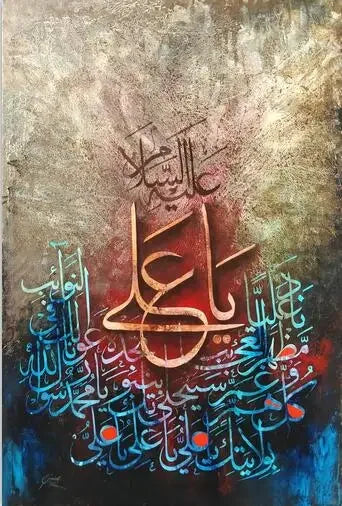 عليه السلام
يا علي
ناد عليا مظهر العجائب
تجده عونا لك في النوائب
كل هم وغم سينجلي
بنبوتك يا محمد رسول الله
بولايتك يا علي يا علي يا علي